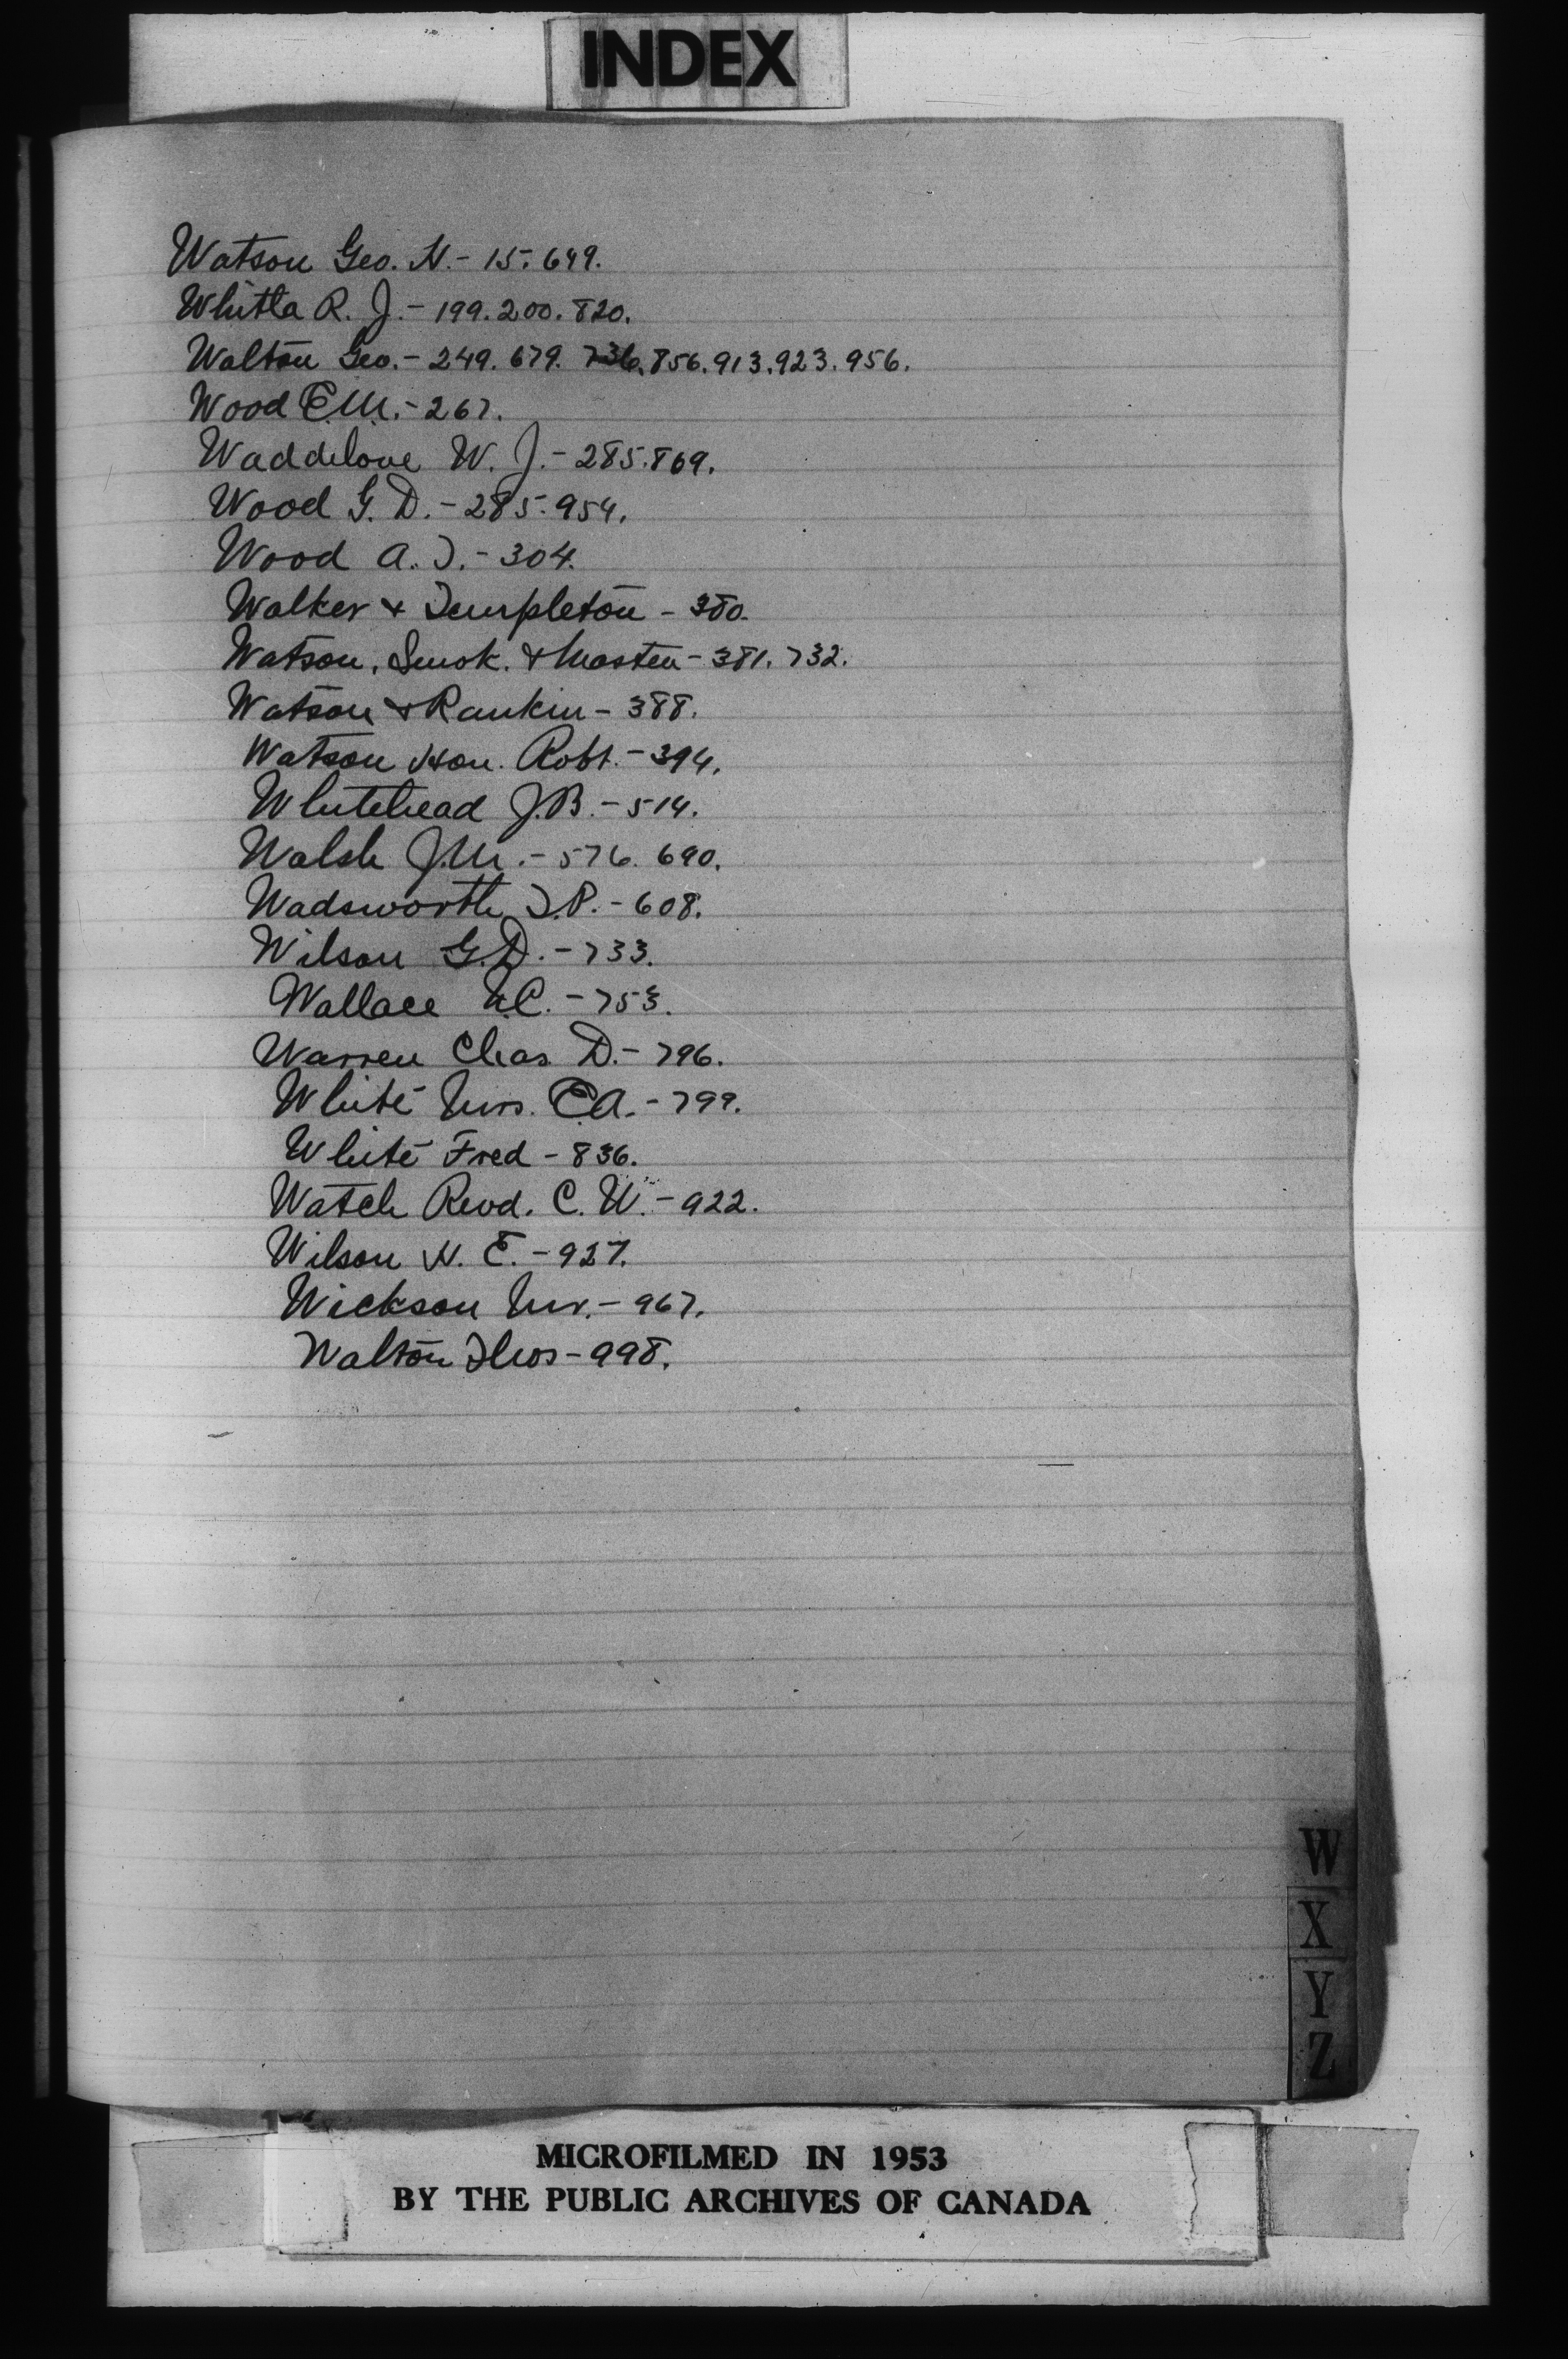 INDEX
Watson Geo. H. - 15. 649.
Whitla R. J. - 199. 200. 820.
Walton Geo. - 249. 679. 736. 856. 913. 923. 956.
Wood E.M. - 267.
Waddelove W. J. - 285. 869.
Wood G. D. - 285. 954.
Wood A. T. - 304.
Walker & Templeton - 380.
Watson, Smok. & Masten - 381. 732.
Watson & Rankin - 388.
Watson Hon. Robt. - 394.
Whitehead J.B. - 514.
Walsh J.M. - 576. 690.
Wadsworth T.P. - 608.
Wilson G.D. - 733.
Wallace N.C. - 753.
Warren Chas. D. - 796.
White Mrs. E.A. - 799.
White Fred - 836.
Watch Revd. C. W. - 922.
Wilson H. E. - 927.
Wickson Mr. - 967.
Walton Thos - 998.
W
X
Y
Z
MICROFILMED IN 1953
BY THE PUBLIC ARCHIVES OF CANADA